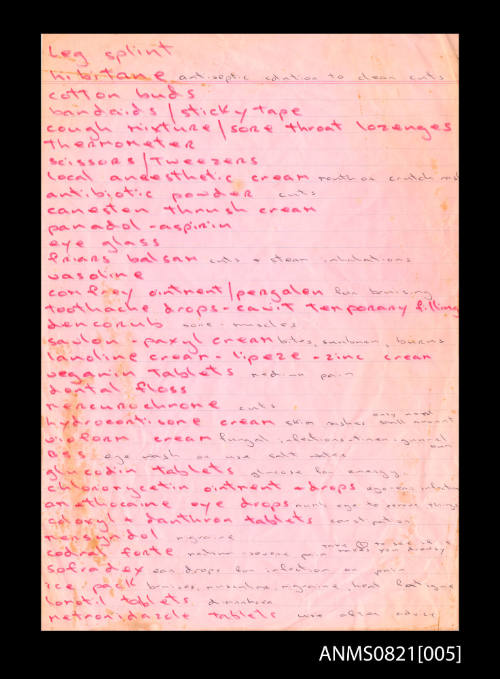 Leg splint
hibitane antiseptic solution to clean cuts
cotton buds
bandaids / sticky tape
cough mixture / sore throat lozenges
thermometer
scissors / tweezers
local aneesthetic cream mouth or crutch
antibiotic powder cuts
canesten thrush cream
panadol - aspirin
eye glass
friars balsam cuts + steam inhalations
vasoline
comfrey ointment / pergalen for bruising
toothache drops - cavit temporary filling
dencorub sore muscles
savlon - paxyl cream bites, sunburn, burns
lanoline cream - lipeze - zinc cream
veganin tablets medium pain
dental floss
mercurochrome cuts
hydrocortisone cream skin rashes only need small amount
vioform cream fungal infections
BSS eye wash or use salt water
glucodin tablets glucose for energy
chloromycetin ointment + drops
amethocaine eye drops numb eye to remove things
coloxyl + danthron tablets constipation
mersyndol migraine
codral forte severe pain makes you drowsy
sofradex ear drops for infection or pain
ice pack bruises, muscular, migraine, heat fatigue
lomotil tablets diarrhoea
metronidazole tablets use after advice
ANMS0821[005]